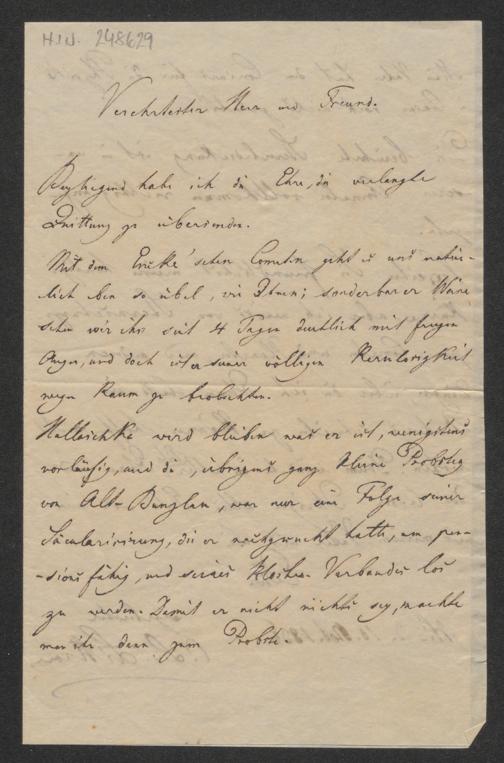 H.I.N. 248629
Verehrtester Herr und Freund.
Beyliegend habe ich die Ehre, die verlangte
Quittung zu übersenden.
Mit dem Encke'schen Cometen geht es uns natür-
lich eben so übel, wie Ihnen; sonderbarer Weise
sehen wir ihn seit 4 Tagen deutlich mit freyen
Augen, und doch ist er seiner völligen Kernlosigkeit
wegen kaum zu beobachten.
Hallaschka wird bleiben was er ist, wenigstens
vorläufig, und die übrigens ganz kleine Probstey
von Alt-Bunzlau, war nur eine Folge seiner
Säcularisirung, die er nachgesucht hatte, um pen-
sionsfähig, und seines Kloster-Verbandes los
zu werden. Damit er nicht nichts sey, machte
man ihn denn zum Probste.